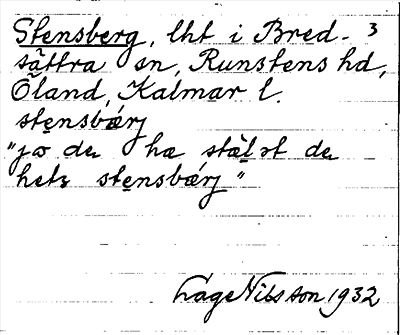 Stensberg, lht i Bred- 3
sättra sn, Runstens hd,
Öland, Kalmar l.
stensbærj
"ja de ha stält de
hets stensbærj"
Låge Nilsson 1932